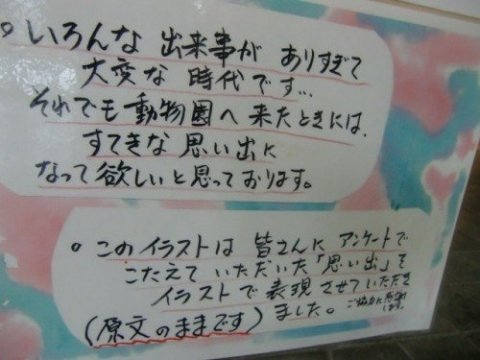 ○ いろんな 出来事が ありすぎて
大変な 時代です…
それでも 動物園へ 来たときには、
すてきな 思い出に
なって欲しいと思っております。
○ このイラストは 皆さんに アンケートで
こたえて いただいた「思い出」を
イラストで 表現 させていただき
(原文のままです) ました。ご協力に感謝
します。